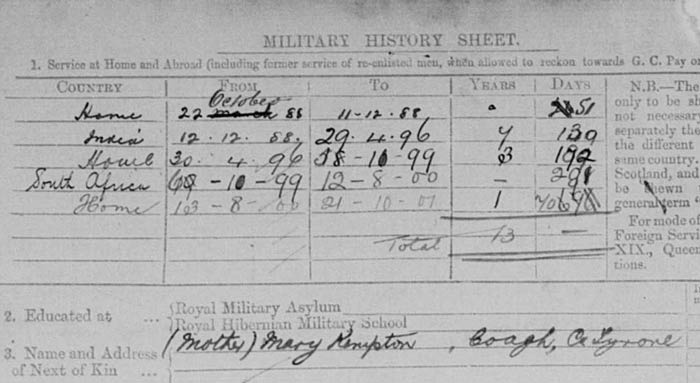 MILITARY HISTORY SHEET.
1. Service at Home and Abroad (including former service of re-enlisted men, when allowed to reckon towards G. C. Pay or
COUNTRY FROM TO YEARS DAYS
October
Home 22 March 88 11-12.88 51
India 12.12.88. 29.4.96 7 139
Home 30. 4.96 18-10-99 3 192
South Africa -10-99 12-8-00 - 291
Home 13-8-00 21-10-01 1
Total 13 -
N.B.—The
only to be sh
not necessary
separately the
the different
same country.
Scotland, and
be shewn
general term "
For mode of
Foreign Servi
XIX., Queen
tions.
2. Educated at ... {Royal Military Asylum
Royal Hibernian Military School
3. Name and Address (Mother) Mary Kempton, Coagh, Co Tyrone
of Next of Kin ...